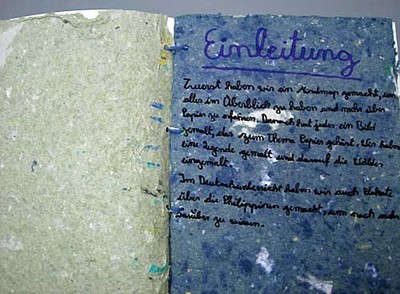 Einleitung
Zuerst haben wir ein Mindmap gemacht, um
alles im Überblick zu haben und mehr über
Papier zu erfahren. Danach hat jeder ein Bild
gemalt, das zum Thema Papier gehört. Wir haben
eine Legende gemalt und darauf die Wälder
eingemalt.
Im Deutschunterricht haben wir auch Plakate
über die Philippinen gemacht, um noch mehr
darüber zu wissen.